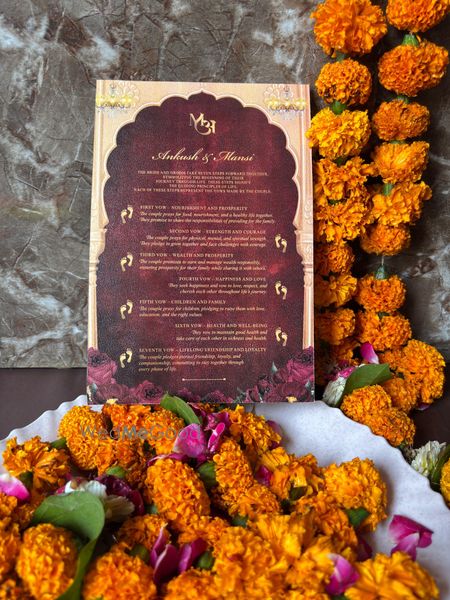 Ankush & Mansi
THE BRIDE AND GROOM TAKE SEVEN STEPS FORWARD TOGETHER,
SYMBOLIZING THE BEGINNING OF THEIR
JOURNEY THROUGH LIFE. THESE SEVEN VOWS
THE GUIDING PRINCIPLES OF LIFE.
EACH OF THESE STEPS REPRESENT THE VOWS MADE BY THE COUPLE.
FIRST VOW - NOURISHMENT AND PROSPERITY
The couple prays for food, nourishment, and a healthy life together.
They promise to share the responsibilities of providing for the family.
SECOND VOW - STRENGTH AND COURAGE
The couple prays for physical, mental, and spiritual strength.
They pledge to grow together and face challenges with courage.
THIRD VOW - WEALTH AND PROSPERITY
The couple promises to earn and manage wealth responsibly,
ensuring prosperity for their family while sharing it with others.
FOURTH VOW - HAPPINESS AND LOVE
They seek happiness and vow to love, respect, and
cherish each other throughout life's journey.
FIFTH VOW - CHILDREN AND FAMILY
The couple prays for children, pledging to raise them with love,
education, and the right values.
SIXTH VOW - HEALTH AND WELL-BEING
They vow to maintain good health and
take care of each other in sickness and health.
SEVENTH VOW - LIFELONG FRIENDSHIP AND LOYALTY
The couple pledges eternal friendship, loyalty, and
companionship, committing to stay together through
every phase of life.